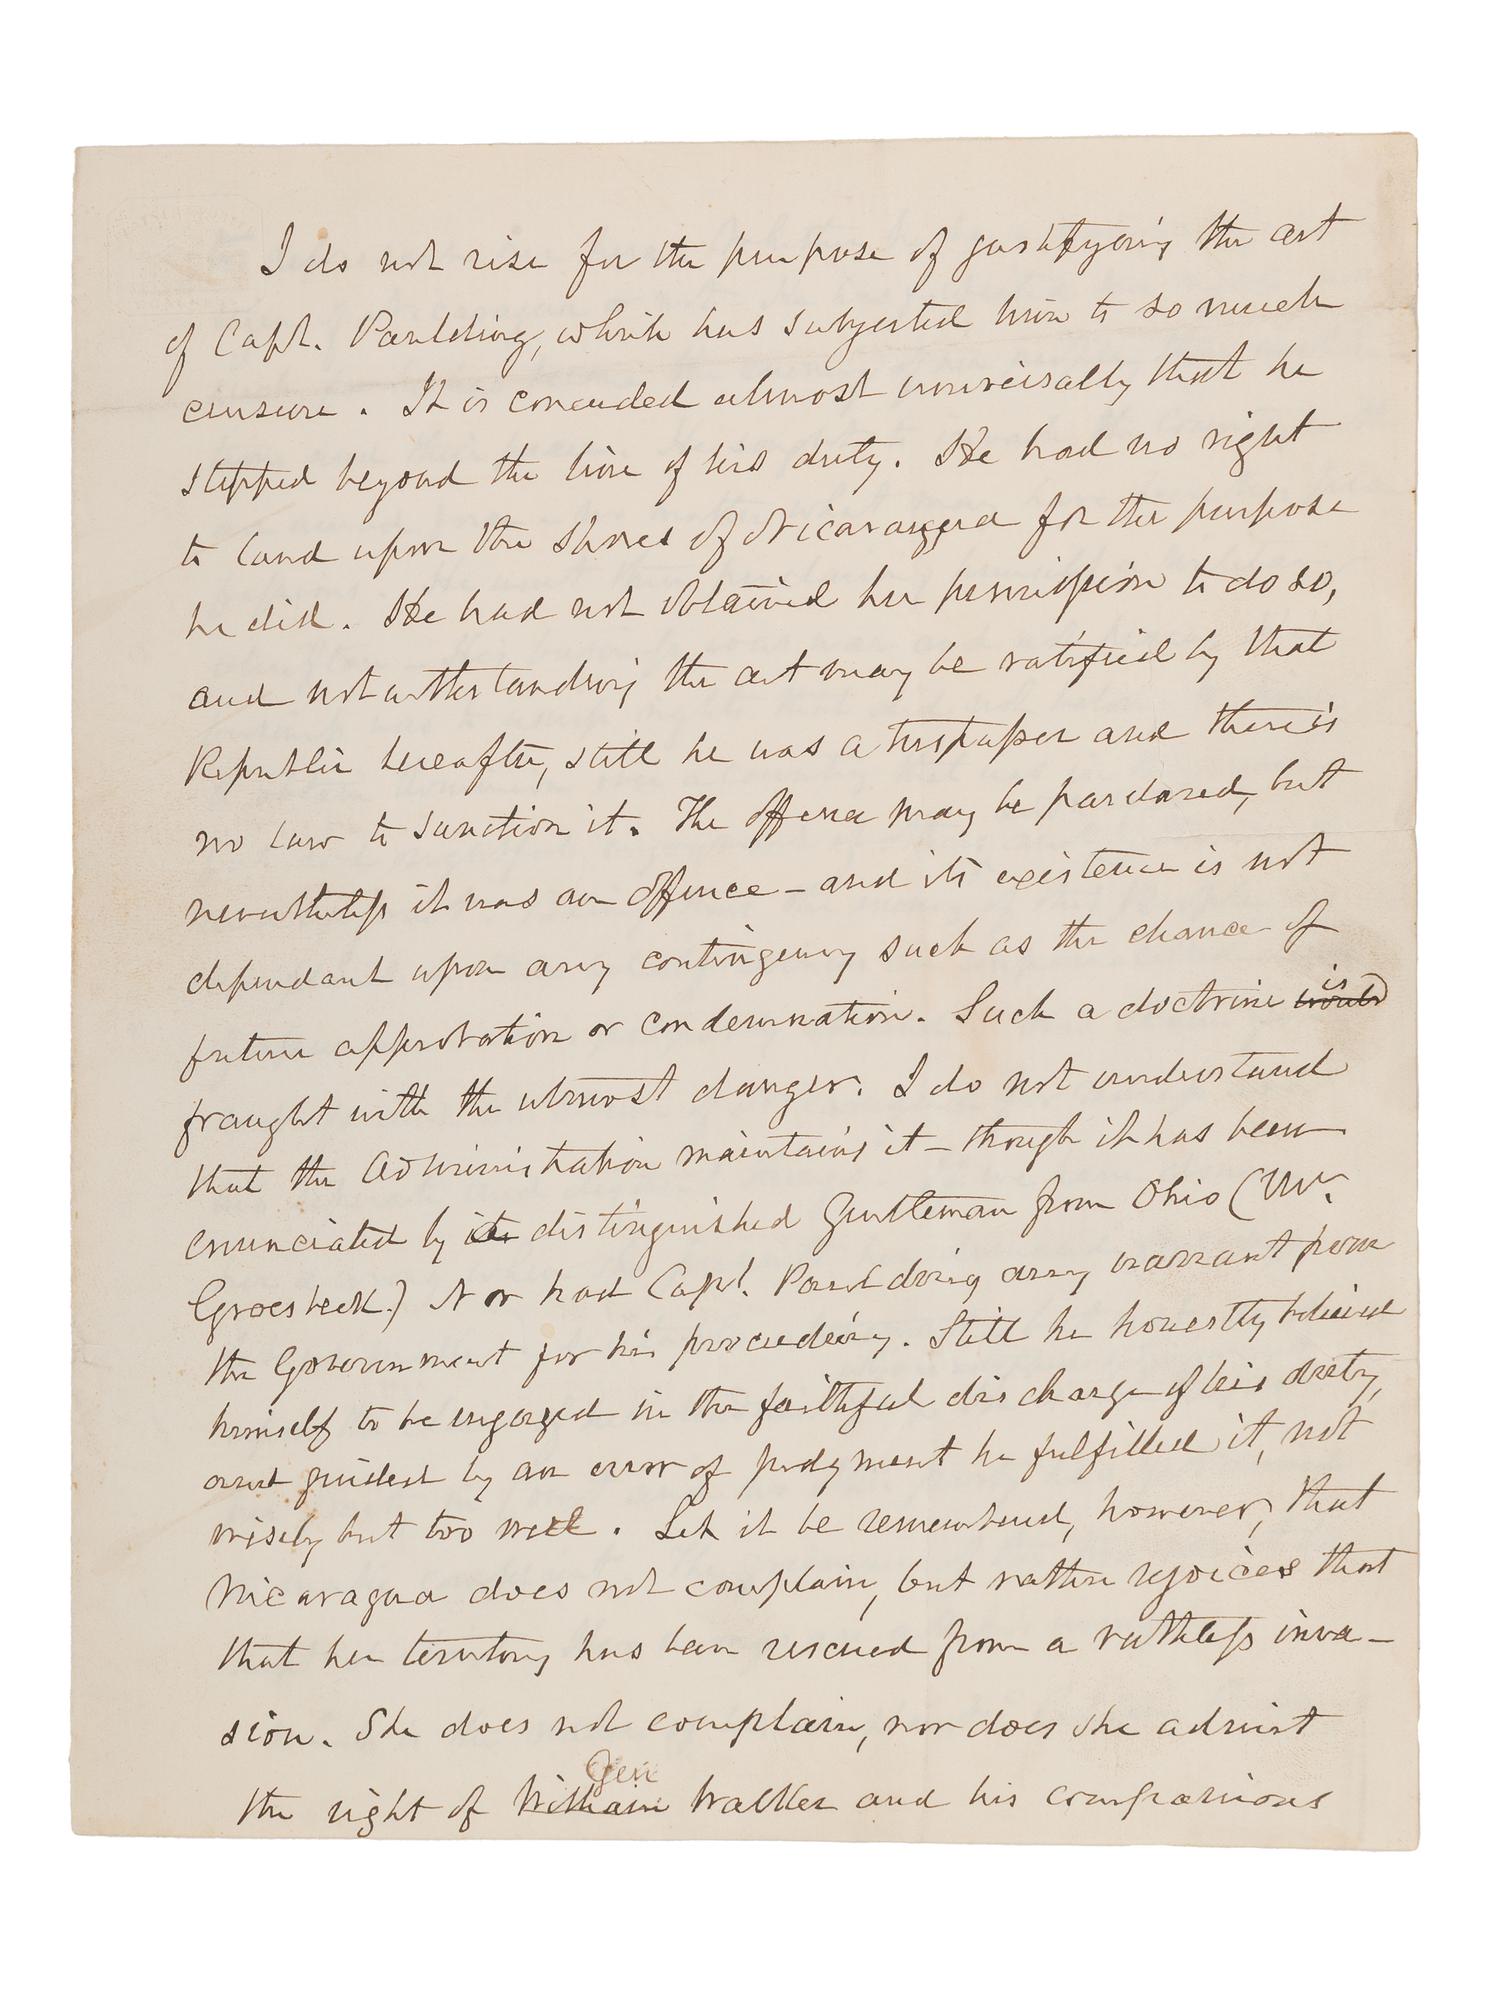 I do not rise for the purpose of justifying the act
of Capt. Paulding, which has subjected him to so much
censure. It is conceded almost universally that he
stepped beyond the line of his duty. He had no right
to land upon the shores of Nicaragua for the purpose
he did. He had not obtained her permission to do so,
and notwithstanding the act may be ratified by that
Republic hereafter, still he was a trespasser and there is
no law to sanction it. The offence may be pardoned, but
nevertheless it was an offence - and its existence is not
dependant upon any contingency such as the chance of
future approbation or condemnation. Such a doctrine is would
fraught with the utmost danger. I do not understand
that the Administration maintains it - though it has been
enunciated by distinguished Gentleman from Ohio (Mr.
Groesbeck.) Nor had Capt. Paulding any warrant from
the Government for his proceeding. Still he honestly believed
himself to be engaged in the faithful discharge of his duty,
and guided by an error of judgment he fulfilled it, not
wisely but too well. Let it be remembered, however, that
Nicaragua does not complain, but rather rejoices that
that her territory has been rescued from a ruthless inva-
sion. She does not complain, nor does she admit
the right of William Gen Walker and his companions